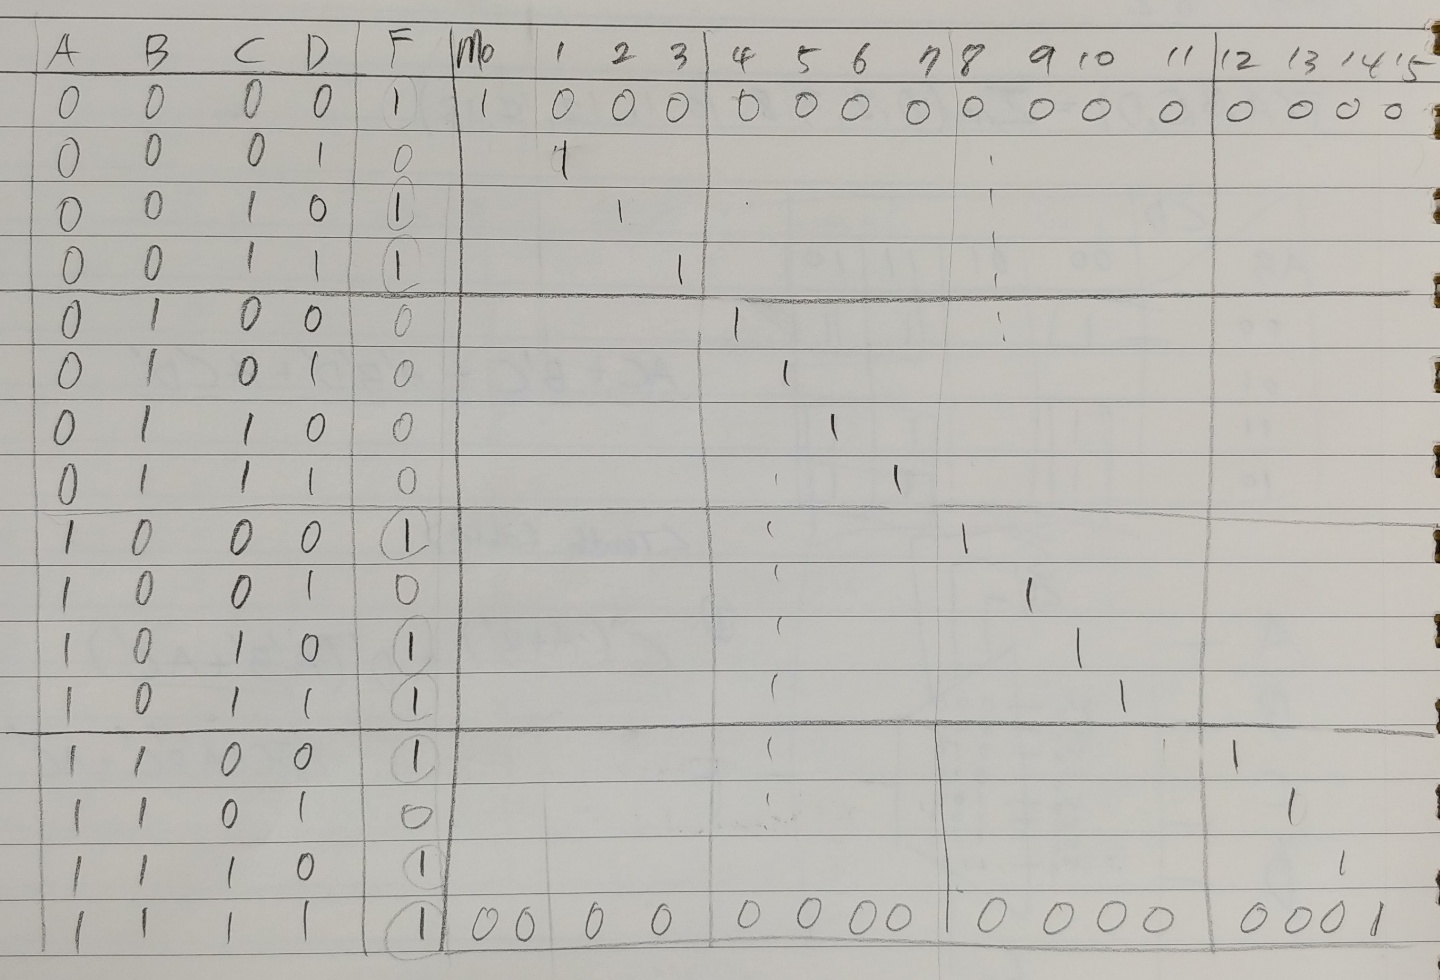 A B C D F m0 1 2 3 4 5 6 7 8 9 10 11 12 13 14 15
0 0 0 0 1 1 0 0 0 0 0 0 0 0 0 0 0 0 0 0 0
0 0 0 1 0 1
0 0 1 0 1 1
0 0 1 1 1 1
0 1 0 0 0 1
0 1 0 1 0 1
0 1 1 0 0 1
0 1 1 1 0 1
1 0 0 0 1 1
1 0 0 1 0 1
1 0 1 0 1 1
1 0 1 1 1 1
1 1 0 0 1 1
1 1 0 1 0 1
1 1 1 0 1 1
1 1 1 1 1 0 0 0 0 0 0 0 0 0 0 0 0 0 0 0 1